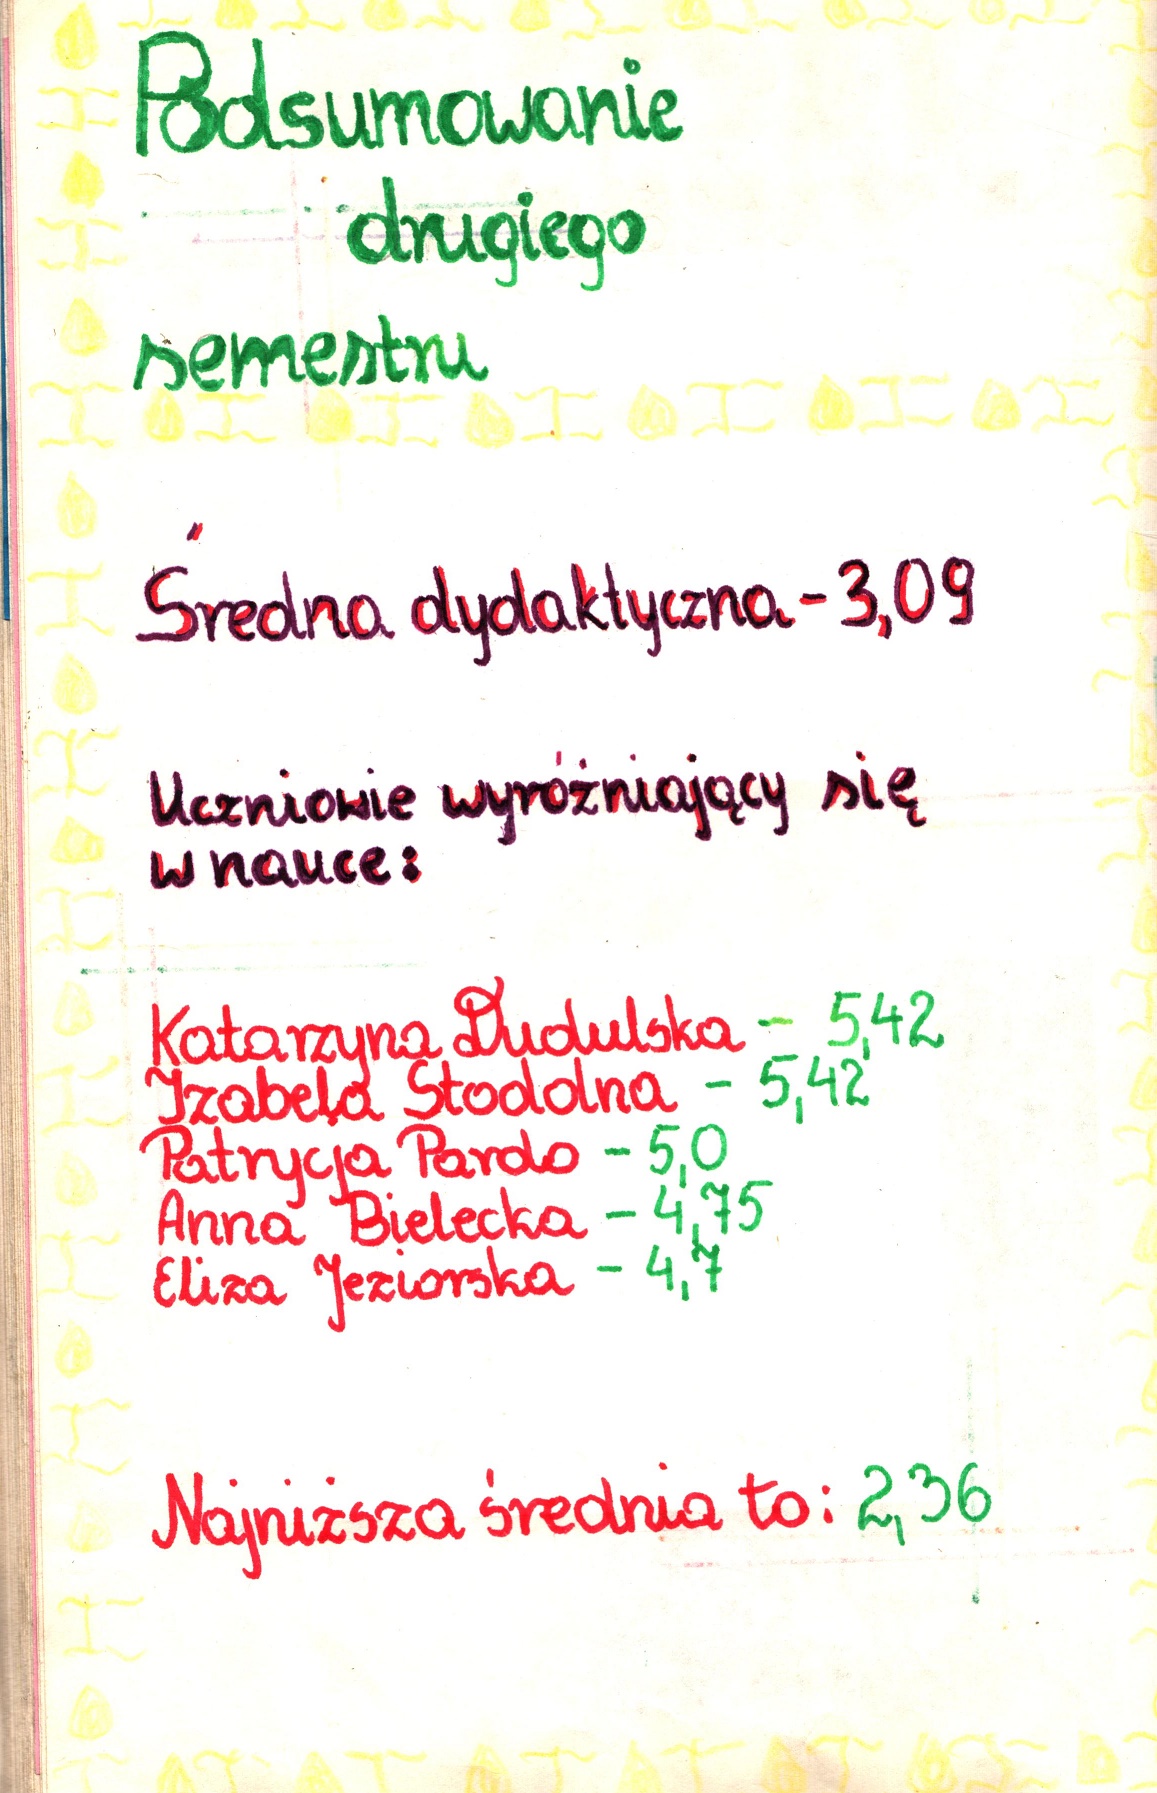 Podsumowanie
drugiego
semestru
Średna dydaktyczna - 3,09
Uczniowie wyróżniający się
w nauce:
Katarzyna Dudulska - 5,42
Izabela Stodolna - 5,42
Patrycja Pardo - 5,0
Anna Bielecka - 4,75
Eliza Jeziorska - 4,7
Najniższa średnia to: 2,36